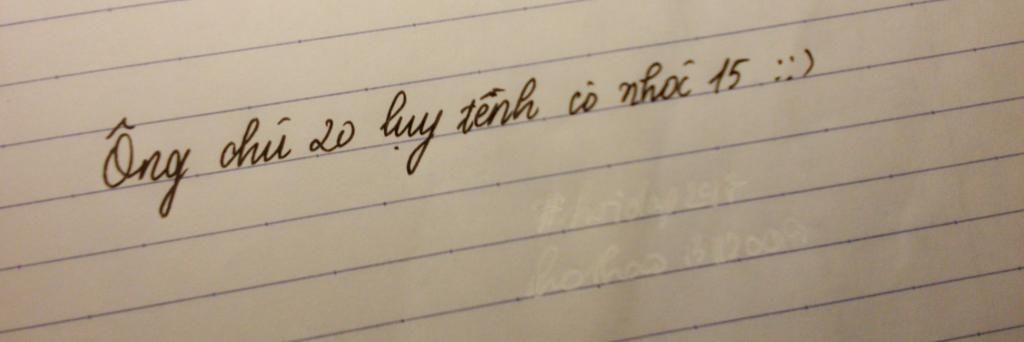 Ông chú 20 lụy tềnh cô nhóc 15 ::)